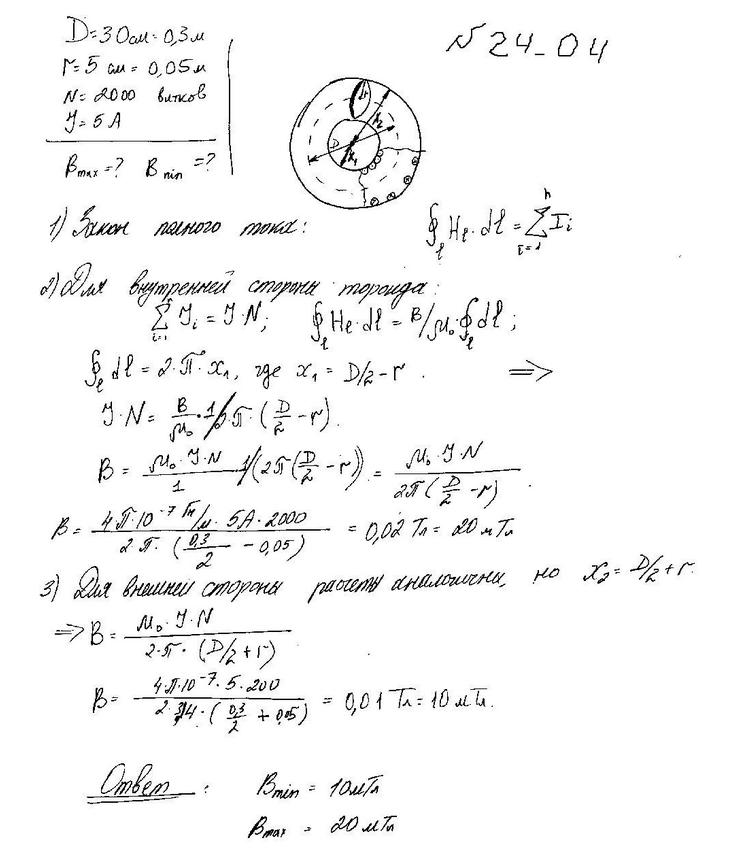 N 24-04
D=30см=0,3м
r=5 см=0,05м
N=2000 витков
J=5А
Bmax=? Bmin=?
D r x₁ x₂
1) Закон полного тока: ∮ₗ Hₗ·dl = Σⁿᵢ₌₁ Iᵢ
2) Для внутренней стороны тороида:
Σᵢ₌₁ Jᵢ = J·N; ∮ₗ Hₗ·dl = B/μ₀·∮ₗ dl;
∮ₗ dl = 2·π·x₁, где x₁ = D/2-r. ⇒
J·N = B/μ₀ · 1/2·π·(D/2 - r).
B = μ₀·J·N/1 · 1/(2π(D/2 - r)) = μ₀·J·N / 2π(D/2 - r).
B = 4π·10⁻⁷ Гн/м·5А·2000 / 2π·(0,3/2 - 0,05) = 0,02 Тл = 20 мТл
3) Для внешней стороны расчеты аналогичны, но x₂=D/2+r.
⇒ B = μ₀·J·N / 2·π·(D/2+r)
B = 4·π·10⁻⁷·5·200 / 2·3,14·(0,3/2 + 0,05) = 0,01 Тл = 10 мТл.
Ответ: Bmin = 10мТл
Bmax = 20 мТл